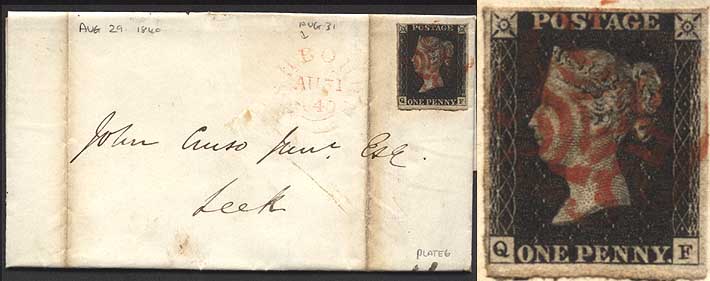 AUG 29 1840
AUG 31
1
AU 31
1840
POSTAGE
Q ONE PENNY F
John Cruso Junr. Esq.
Leek
PLATE 6
POSTAGE
Q ONE PENNY. F